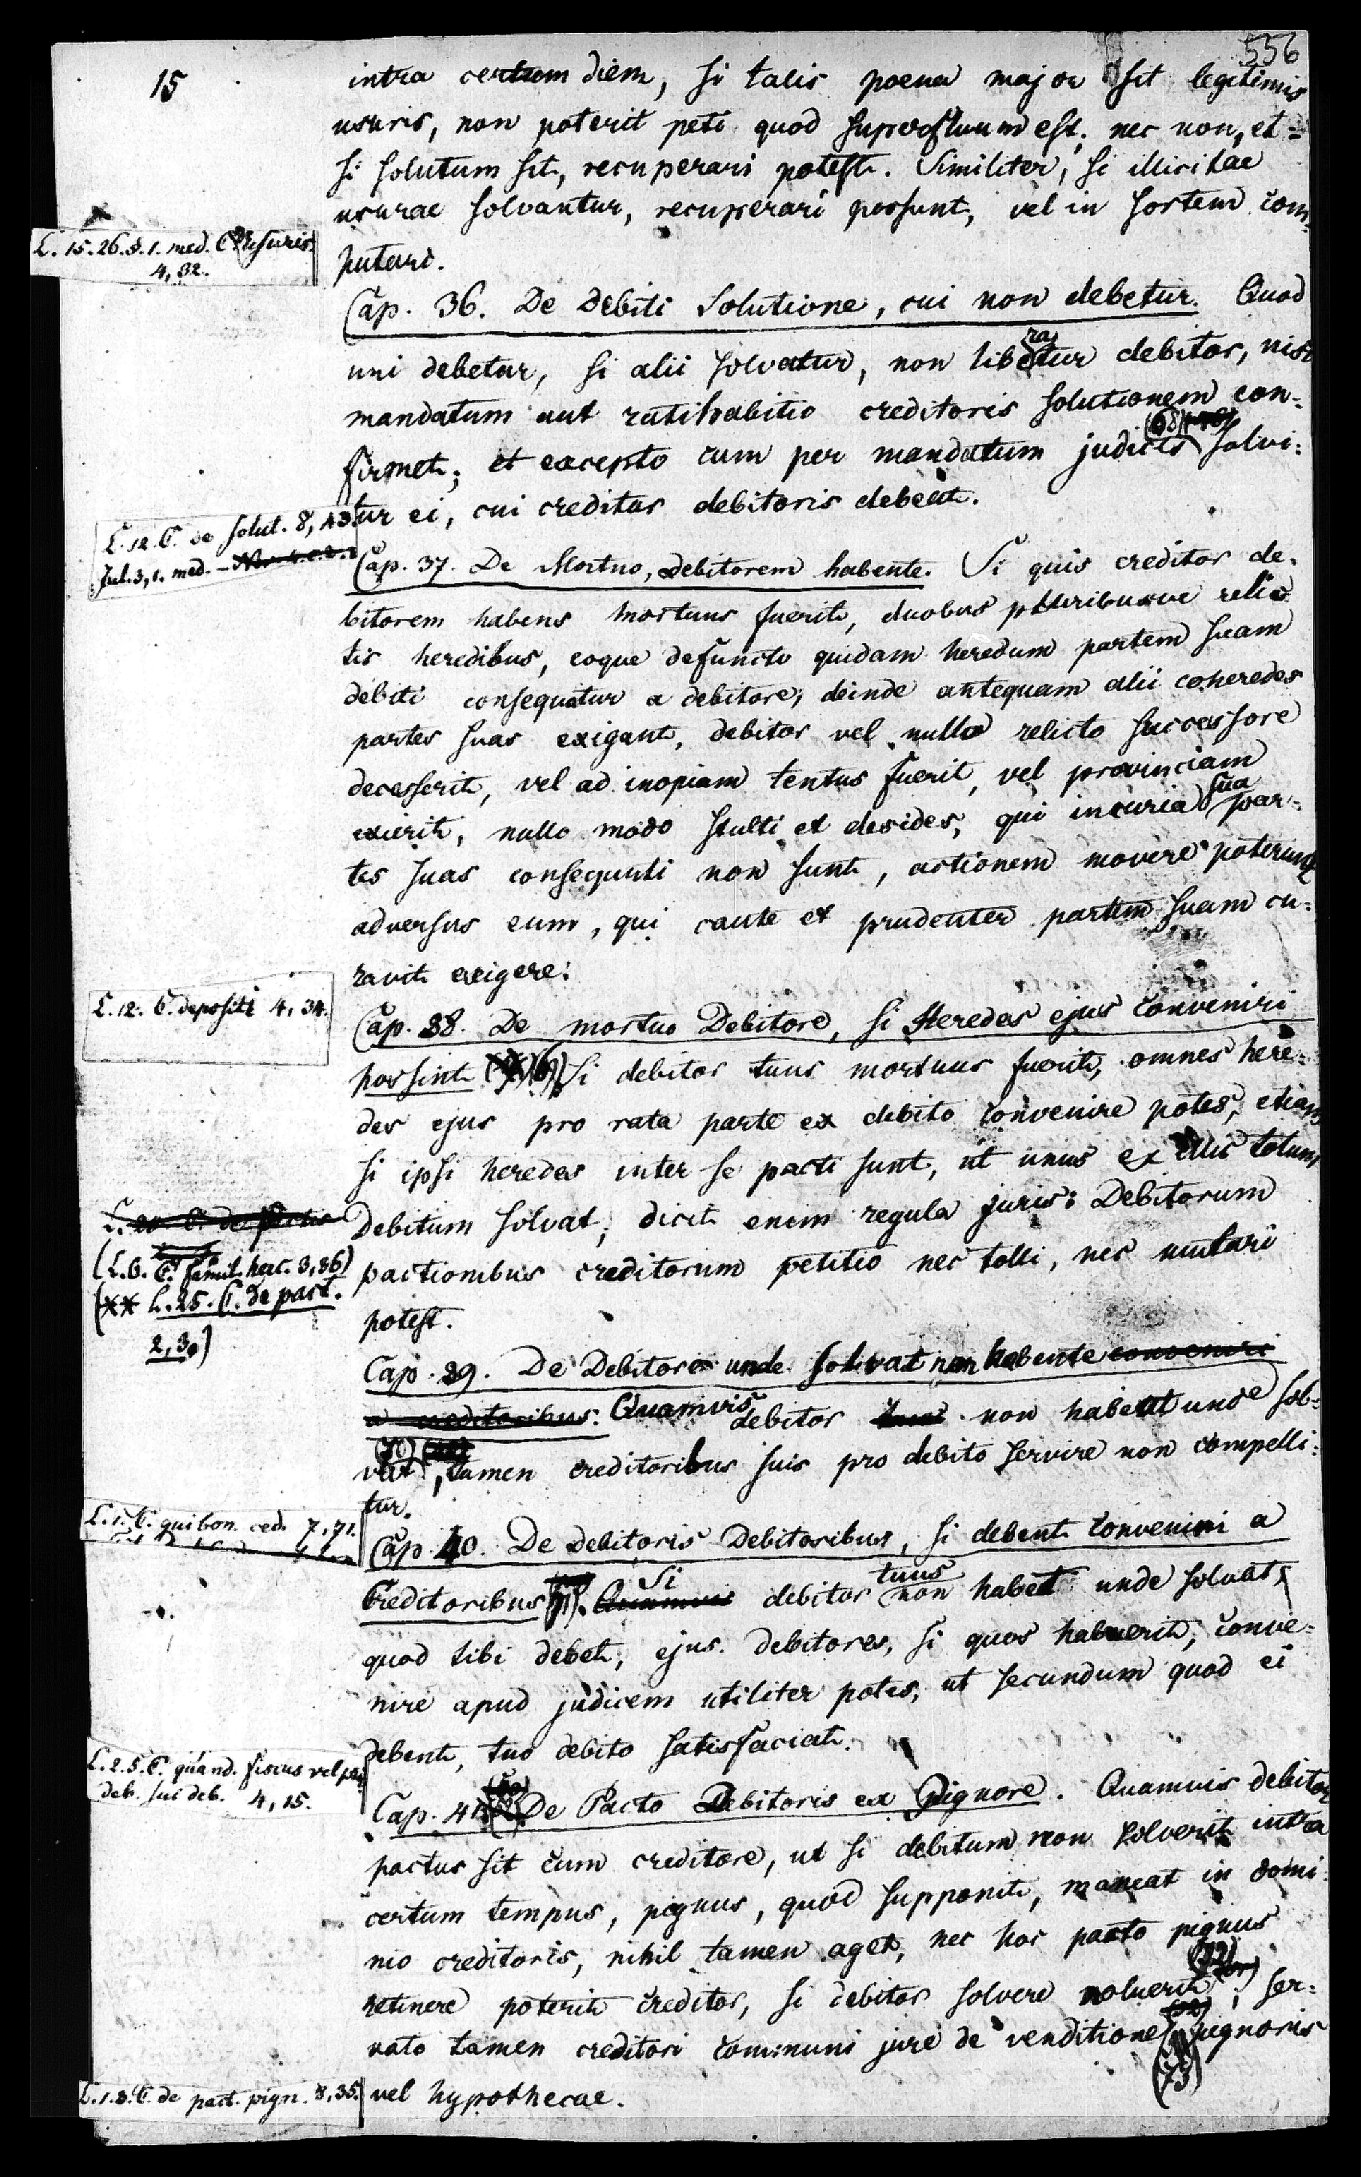 556
15
intra certum diem, si talis poena major sit legitimis
usuris, non poterit peti quod superfluum est; nec non, et-
si solutum sit, recuperari potest. Similiter, si illicitae
usurae solvantur, recuperari possunt, vel in sortem com-
L. 15. 26. §. 1. med. C. usuris.
4, 32.
putari.
Cap. 36. De Debiti Solutione, cui non debetur. Quod
uni debetur, si alii solvatur, non liberatur debitor, nisi
mandatum aut ratihabitio creditoris solutionem con-
firmet; et excepto cum per mandatum judicis solvi-
tur ei, cui creditor debitoris debeat.
L. 12. C. de solut. 8, 43.
Jul. 3, 1. med. -
Cap. 37. De Mortuo, debitorem habente. Si quis creditor de-
bitorem habens mortuus fuerit, duobus pluribusve relic-
tis heredibus, eoque defuncto quidam heredum partem suam
debiti consequatur a debitore; deinde antequam alii coheredes
partes suas exigant, debitor vel nullo relicto successore
decesserit, vel ad inopiam tentus fuerit, vel provinciam
exierit, nullo modo stulti et desides, qui incuria sua par-
tes suas consequuti non sunt, actionem movere poterunt
adversus eum, qui caute et prudenter partem suam cu-
ravit exigere.
L. 12. C. depositi 4, 34.
Cap. 38. De mortuo Debitore, si Heredes ejus conveniri
possint Si debitor tuus mortuus fuerit, omnes here-
des ejus pro rata parte ex debito convenire potes, etiam
si ipsi heredes inter se pacti sunt, ut unus ex illis totum
L. C. de pactis
Debitum solvat; dicit enim regula juris: Debitorum
(L. 6. C. famil. herc. 3, 36)
pactionibus creditorum petitio nec tolli, nec mutari
(xx L. 25. C. de pact.
2, 3.)
potest.
Cap. 39. De Debitore unde solvat non habente conveniri
a creditoribus. Quamvis debitor non habeat unde sol-
vat (70), tamen creditoribus suis pro debito servire non compelli-
tur.
L. 1. C. qui bon. ced. 7, 71.
Cap. 40. De debitoris Debitoribus, si debent conveniri a
Creditoribus (71). Quamvis Si debitor tuus non habet unde solvat,
quod tibi debet, ejus debitores, si quos habuerit, conve-
nire apud judicem utiliter potes, ut secundum quod ei
debent, tuo debito satisfaciat.
L. 2. 5. C. quand. fiscus vel pri.
deb. sui deb. 4, 15.
Cap. 41. De Pacto Debitoris ex Pignore. Quamvis debitor
pactus sit cum creditore, ut si debitum non solverit intra
certum tempus, pignus, quod supponit, maneat in domi-
nio creditoris, nihil tamen aget, nec hoc pacto pignus
retinere poterit creditor, si debitor solvere noluerit (72); ser-
vato tamen creditori communi jure de venditione pignoris
(73)
L. 1. 3. C. de pact. pign. 8, 35.
vel hypothecae.